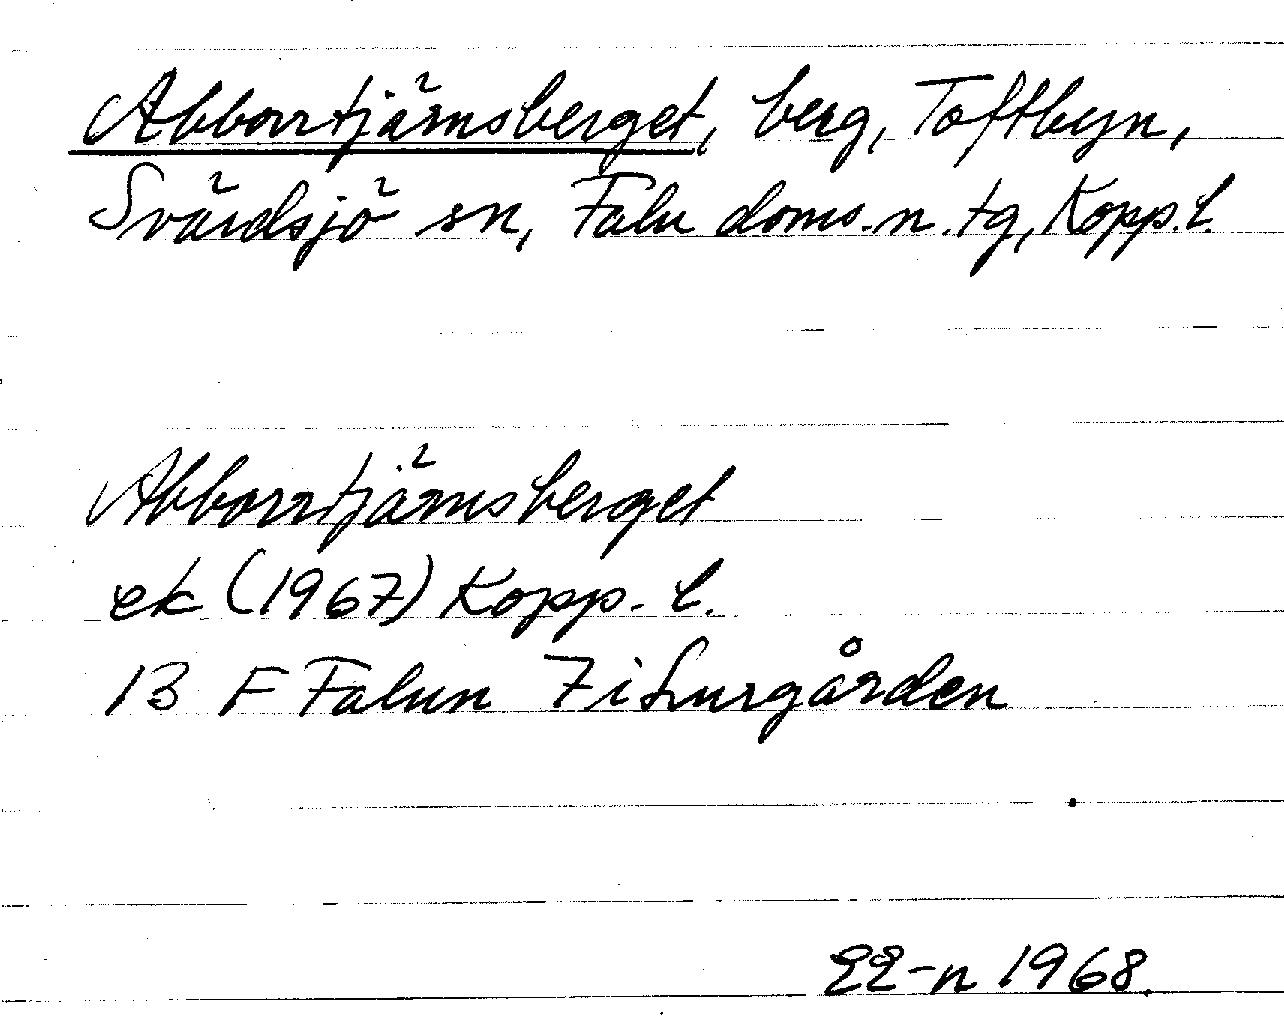 Abborrtjärnsberget, berg, Toftbyn,
Svärdsjö sn, Falu doms.n. tg, Kopp. l.
Abborrtjärnsberget
ek (1967) Kopp. l.
13 F Falun 7 i Lurgården
EE-n 1968.